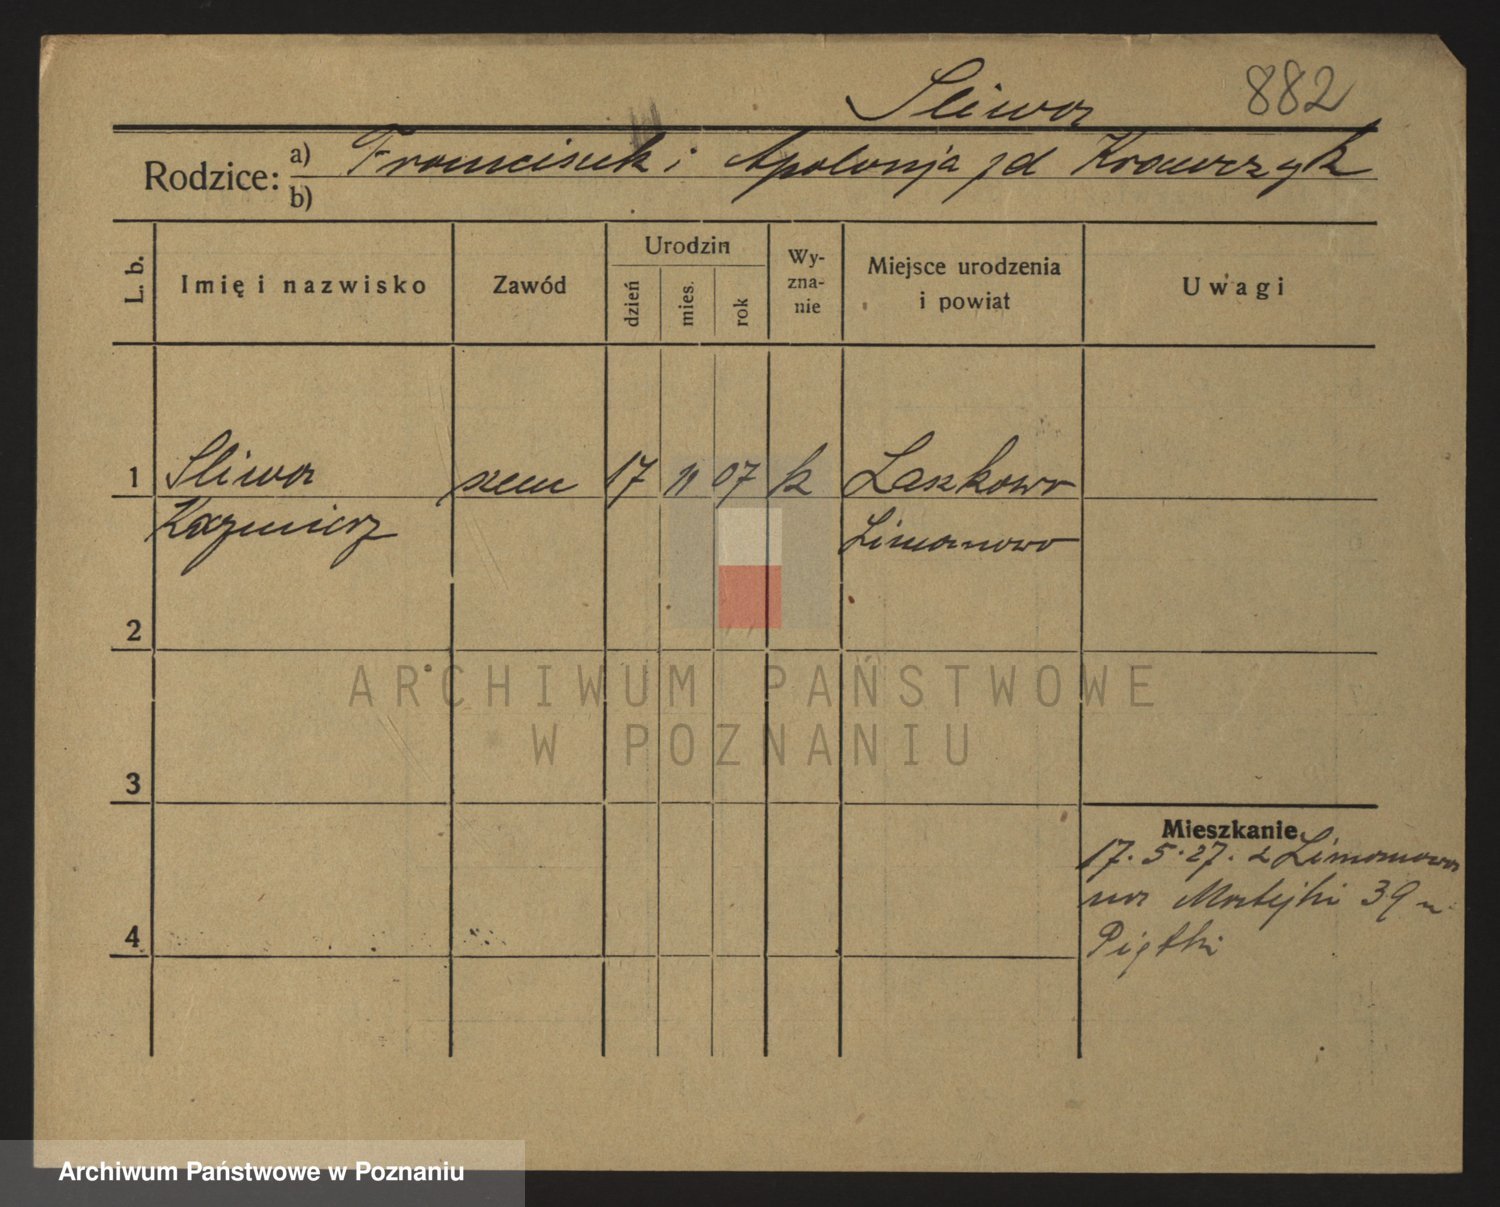 Sliwa 882
Rodzice: a) Franciszek i Apolonja zd Krawczyk
b)
L. b. Imię i nazwisko Zawód Urodzin dzień mies. rok Wyznanie Miejsce urodzenia i powiat Uwagi
1 Sliwa 17 11 07 k Laskowo
Kazmierz Limanowo
2
ARCHIWUM PAŃSTWOWE
W POZNANIU
3
Mieszkanie
17. 5. 27. z Limanowa
na Matejki 39 u
4 Piątki
Archiwum Państwowe w Poznaniu